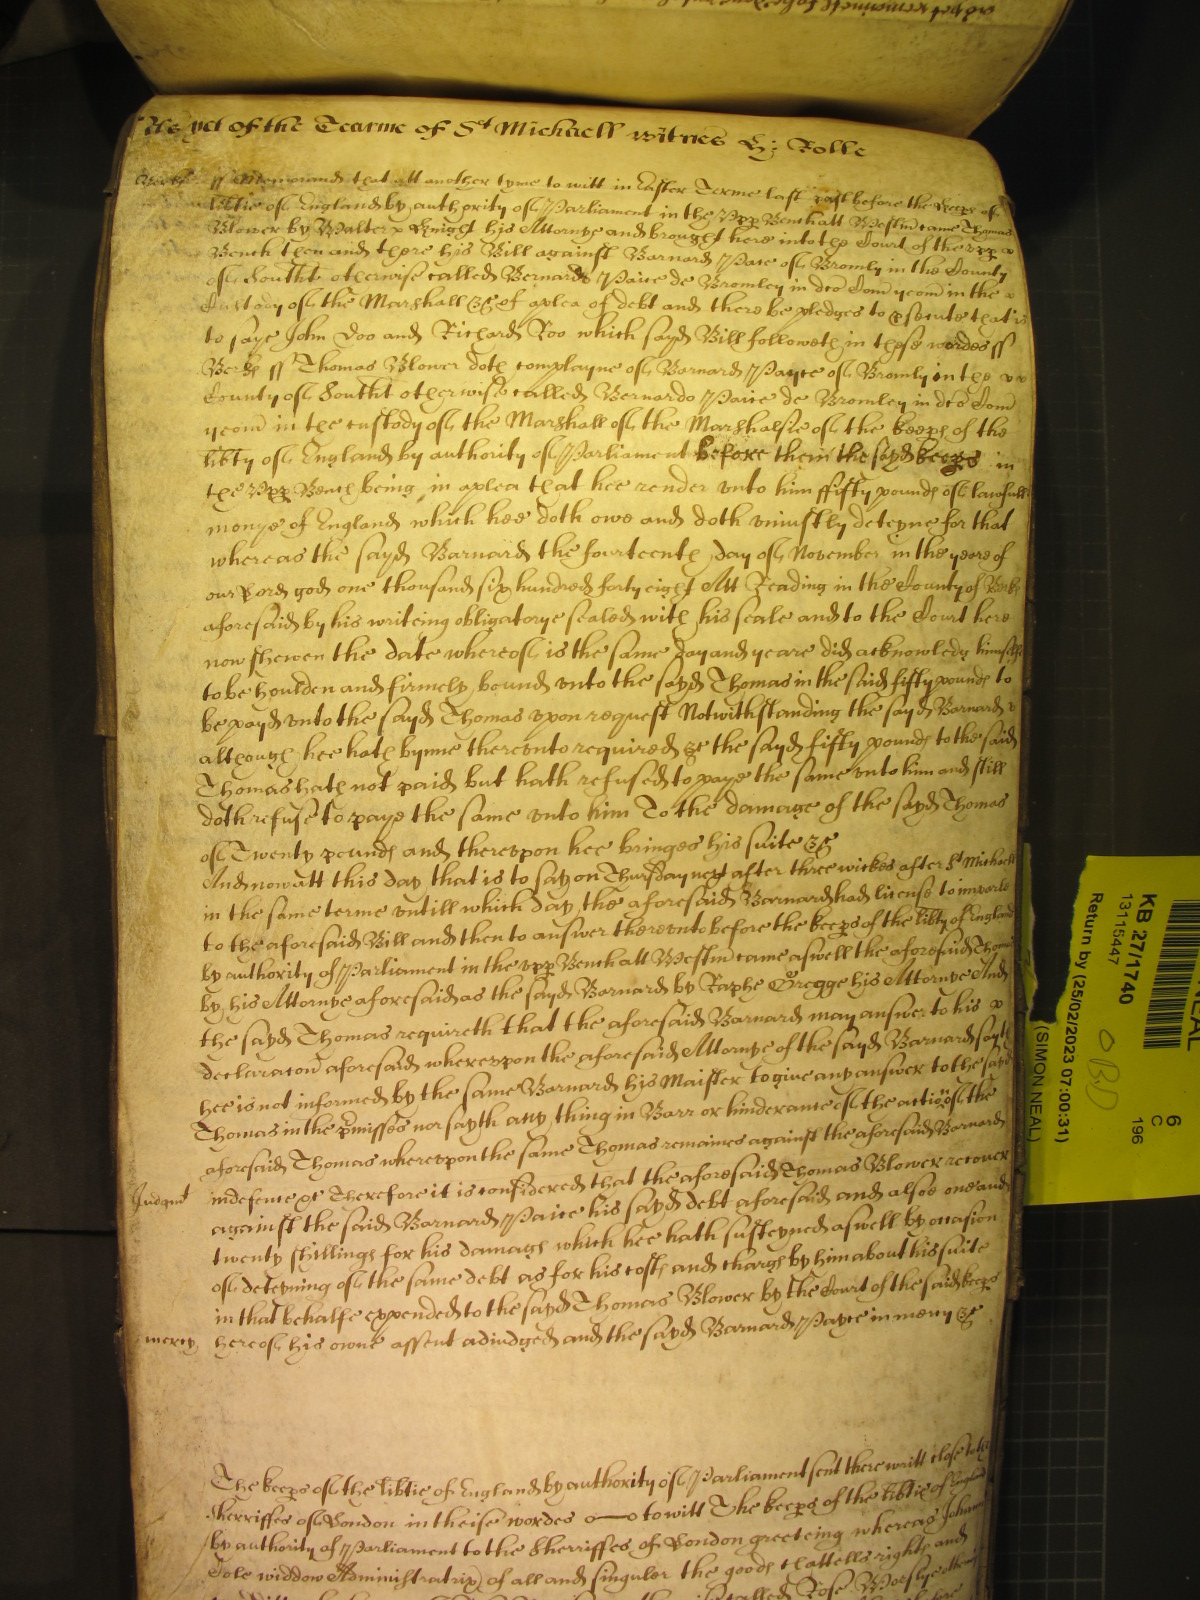 As yet of the Tearme of St Michaell witnes H: Rolle
Berks ss Memorand that att another tyme to witt in Easter Terme last past before the keeps of
libtie of England by authority of Parliament in the Upp Bench att Westm came Thomas
Blower by Walter Knight his Attornye and brought here into the Court of the upp
Bench then and there his Bill against Barnard Paice of Bromly in the County
of Southt otherwise called Bernardo Paice de Bromley in dco Com yeom in the
Custody of the Marshall &c of a plea of debt and there be pledges to psecute that is
to saye John Doo and Richard Roo which sayd Bill followeth in these wordes ss
Berks ss Thomas Blower doth complayne of Barnard Payce of Bromly in the
County of Southt otherwise called Bernardo Paice de Bromley in dco Com
yeom in the custody of the Marshall of the Marshalsie of the keeps of the
libty of England by authority of Parliament before them the sayd keeps in
the Upp Bench being in a plea that hee render unto him ffifty pounds of lawfull
monye of England which hee doth owe and doth uniustly deteyne for that
whereas the sayd Barnard the fourteenth day of November in the yeere of
our Lord god one thousand six hundred forty eight Att Reading in the County of Berks
aforesaid by his writeing obligatorye sealed with his seale and to the Court here
now shewen the date whereof is the same day and yeare did acknowledg himselfe
to be houlden and firmely bound unto the sayd Thomas in the said fifty pounds to
be payd unto the sayd Thomas upon request Notwithstanding the sayd Barnard
although hee hath bynne thereunto required &c the sayd fifty pounds to the said
Thomas hath not paid but hath refused to paye the same unto him and still
doth refuse to paye the same unto him To the damage of the sayd Thomas
of Twenty pounds and thereupon hee bringes his suite &c
And now att this day that is to say on Thursday next after three wickes after St Michaell
in the same terme untill which day the aforesaid Barnard had license to imparle
to the aforesaid Bill and then to answer thereunto before the keeps of the libty of England
by authority of Parliament in the upp Bench att Westm came aswell the aforesaid Thomas
by his Attornye aforesaid as the sayd Barnard by Raphe Gregge his Attornye And
the sayd Thomas requireth that the aforesaid Barnard may answer to his
declaracon aforesaid whereupon the aforesaid Attornye of the sayd Barnard sayth
hee is not informed by the same Barnard his Maister to give any answer to the sayd
Thomas in the pmisses nor sayth any thing in Barr or hinderance of the action of the
aforesaid Thomas whereupon the same Thomas remaines against the aforesaid Barnard
Judgmt indefence &c Therefore it is considered that the aforesaid Thomas Blower recover
against the said Barnard Paice his sayd debt aforesaid and alsoe one and
twenty shillings for his damags which hee hath susteyned aswell by occasion
of deteyning of the same debt as for his costs and chargs by him about his suite
in that behalfe expended to the sayd Thomas Blower by the Court of the said keeps
mercy hereof his owne assent adiudged and the sayd Barnard Payce in mercy &c
The keeps of the libtie of England by authority of Parliament sent there writt close to the
Sherriffes of London in theise wordes to witt The keeps of the libtie of England
by authority of Parliament to the Sherriffes of London greeteing whereas Johan
Cole widdow Administratrix of all and singuler the goods chattells rights and
KB 27/1740
13115447
Return by (25/02/2023 07:00:31)
(SIMON NEAL)
6
C
196
NEAL